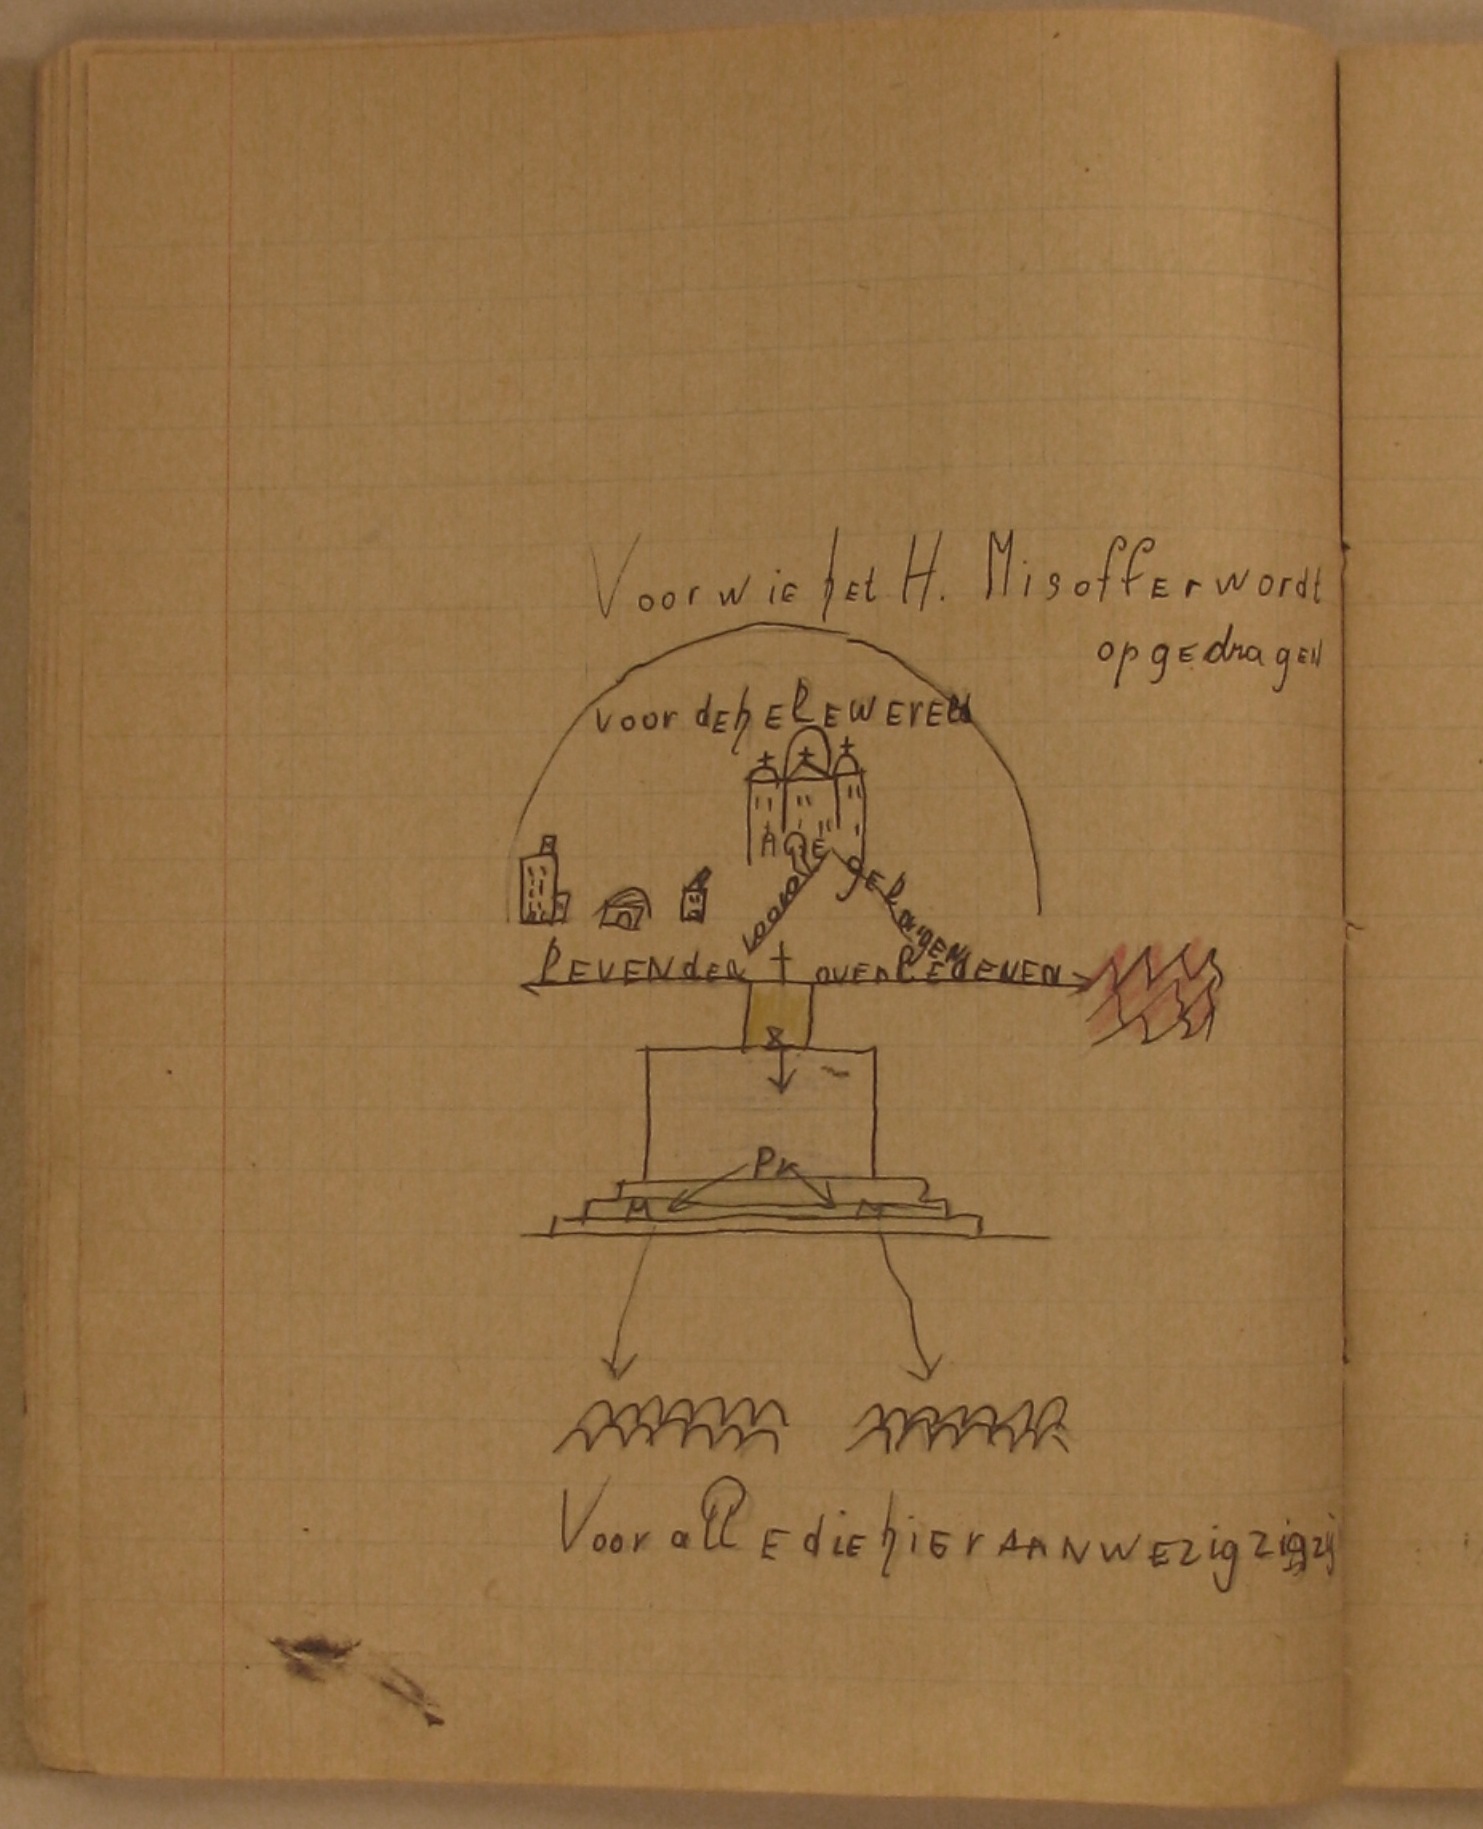 Voor wie het H. Misoffer wordt
opgedragen
voor de hele wereld
Alle
voor
gelovigen
levenden
overledenen
Pr
M
M
Voor alle die hier aanwezig zig zij